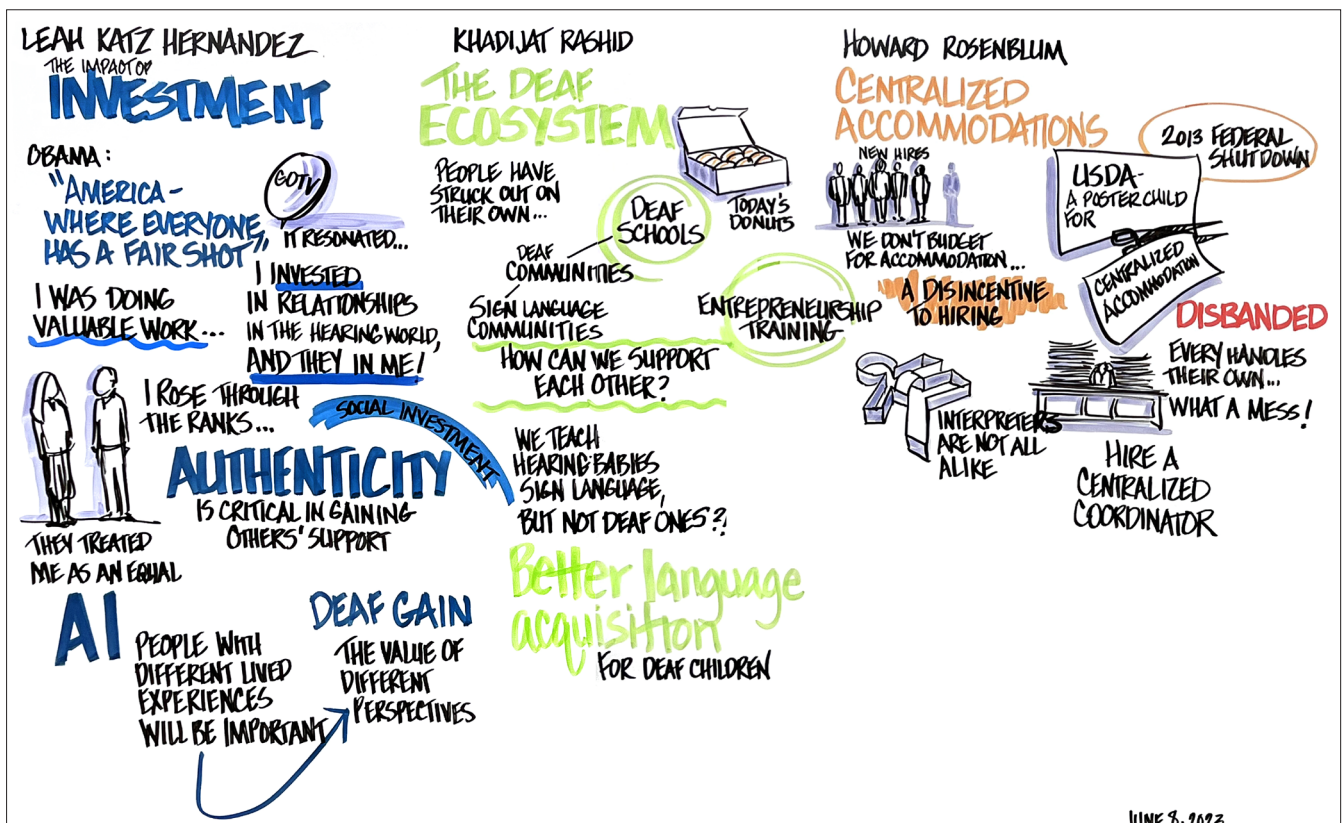 LEAH KATZ HERNANDEZ
THE IMPACT OF
INVESTMENT
OBAMA:
"AMERICA -
WHERE EVERYONE
HAS A FAIR SHOT"
GOTV
IT RESONATED...
I WAS DOING
VALUABLE WORK...
I INVESTED
IN RELATIONSHIPS
IN THE HEARING WORLD,
AND THEY IN ME!
I ROSE THROUGH
THE RANKS...
SOCIAL INVESTMENT
AUTHENTICITY
IS CRITICAL IN GAINING
OTHERS' SUPPORT
THEY TREATED
ME AS AN EQUAL
AI
PEOPLE WITH
DIFFERENT LIVED
EXPERIENCES
WILL BE IMPORTANT
DEAF GAIN
THE VALUE OF
DIFFERENT
PERSPECTIVES
KHADIJAT RASHID
THE DEAF
ECOSYSTEM
PEOPLE HAVE
STRUCK OUT ON
THEIR OWN...
TODAY'S
DONUTS
DEAF
SCHOOLS
DEAF
COMMUNITIES
SIGN LANGUAGE
COMMUNITIES
ENTREPRENEURSHIP
TRAINING
HOW CAN WE SUPPORT
EACH OTHER?
WE TEACH
HEARING BABIES
SIGN LANGUAGE,
BUT NOT DEAF ONES?!
Better language
acquisition
FOR DEAF CHILDREN
HOWARD ROSENBLUM
CENTRALIZED
ACCOMMODATIONS
NEW HIRES
WE DON'T BUDGET
FOR ACCOMMODATION...
A DISINCENTIVE
TO HIRING
2013 FEDERAL
SHUTDOWN
USDA-
A POSTER CHILD
FOR
CENTRALIZED
ACCOMMODATION
DISBANDED
EVERY HANDLES
THEIR OWN...
WHAT A MESS!
INTERPRETERS
ARE NOT ALL
ALIKE
HIRE A
CENTRALIZED
COORDINATOR
JUNE 8, 2023